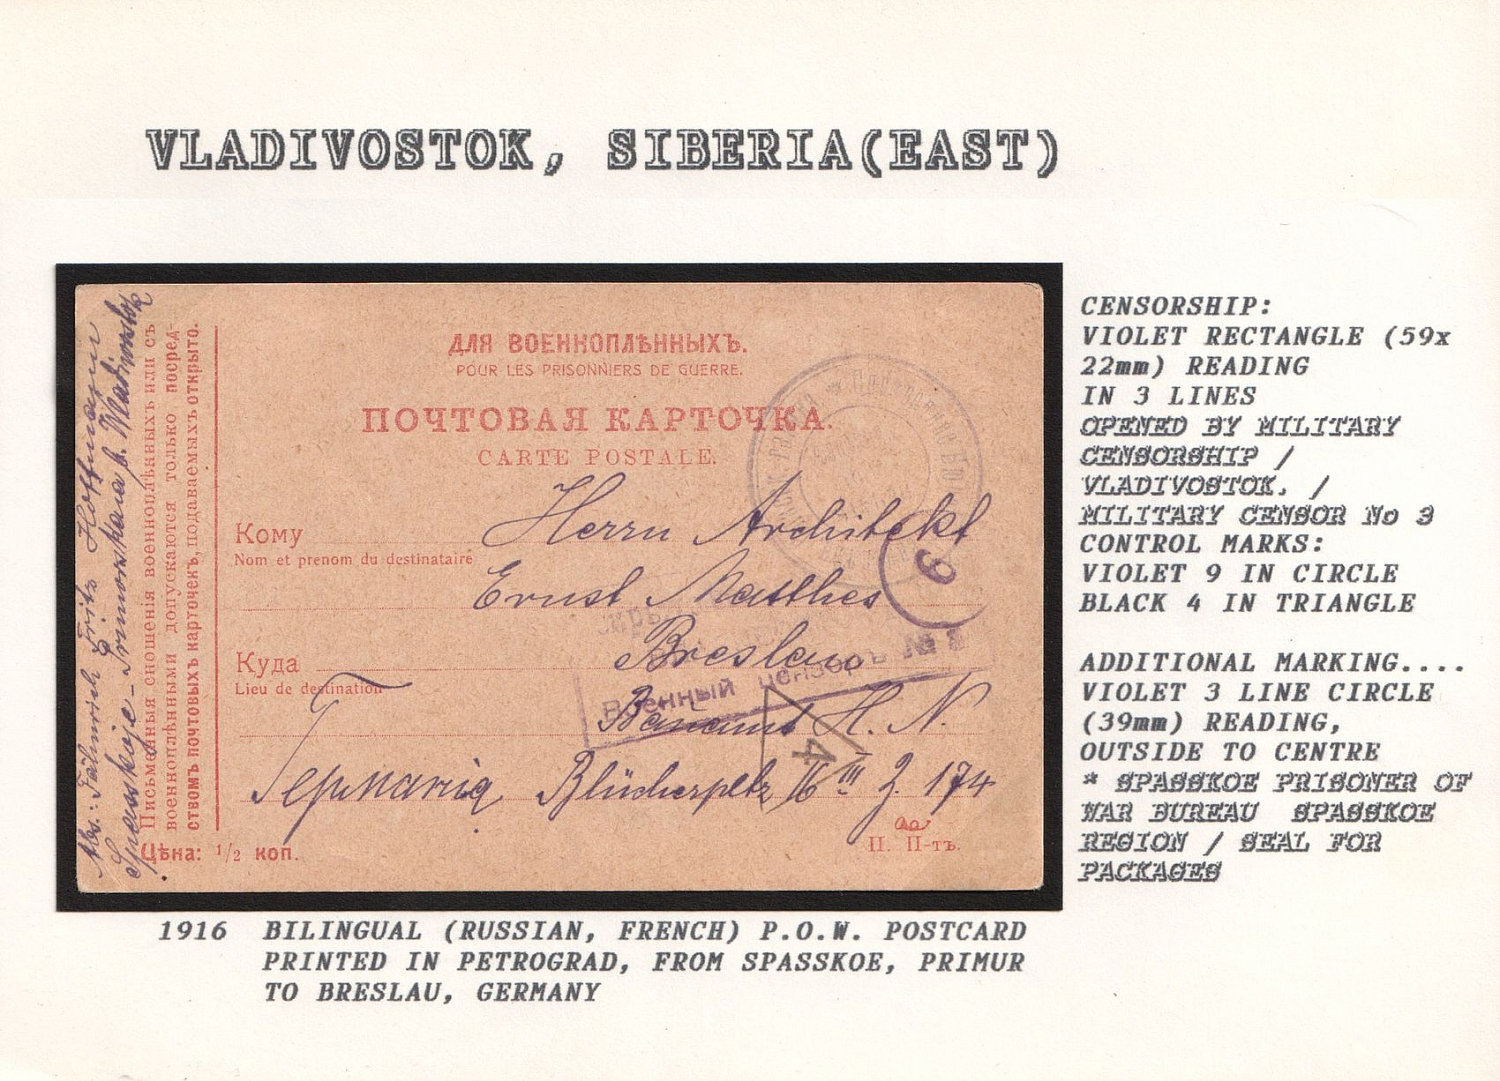 VLADIVOSTOK, SIBERIA(EAST)
Abs: Fähnrich Fritz Hoffmann
Spasskoje - Primorskaja b. Wladiwostok
Письменныя сношенія военноплѣнныхъ или съ
военноплѣнными допускаются только посред-
ствомъ почтовыхъ карточекъ, подаваемыхъ открыто.
ДЛЯ ВОЕННОПЛѢННЫХЪ.
POUR LES PRISONNIERS DE GUERRE.
ПОЧТОВАЯ КАРТОЧКА.
CARTE POSTALE.
Кому
Herrn Architekt
Nom et prenom du destinataire
9
Ernst Matthes
Куда
Breslau
Lieu de destination
Военный цензоръ №
H. N.
4
Германія Blücherplatz 16 III Z. 174
Цѣна: 1/2 коп.
П. П-тъ.
CENSORSHIP:
VIOLET RECTANGLE (59x
22mm) READING
IN 3 LINES
OPENED BY MILITARY
CENSORSHIP /
VLADIVOSTOK. /
MILITARY CENSOR No 3
CONTROL MARKS:
VIOLET 9 IN CIRCLE
BLACK 4 IN TRIANGLE
ADDITIONAL MARKING....
VIOLET 3 LINE CIRCLE
(39mm) READING,
OUTSIDE TO CENTRE
* SPASSKOE PRISONER OF
WAR BUREAU SPASSKOE
REGION / SEAL FOR
PACKAGES
1916 BILINGUAL (RUSSIAN, FRENCH) P.O.W. POSTCARD
PRINTED IN PETROGRAD, FROM SPASSKOE, PRIMUR
TO BRESLAU, GERMANY